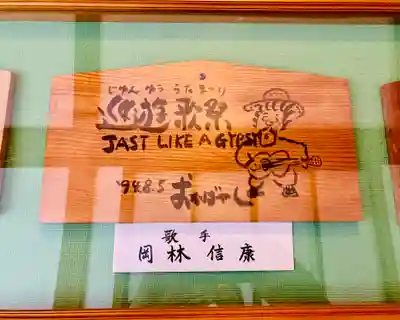 じゅん ゆう うた まつり
巡遊歌祭
JAST LIKE A GYPSY
'94.8.5 おかばやし
歌手
岡林信康